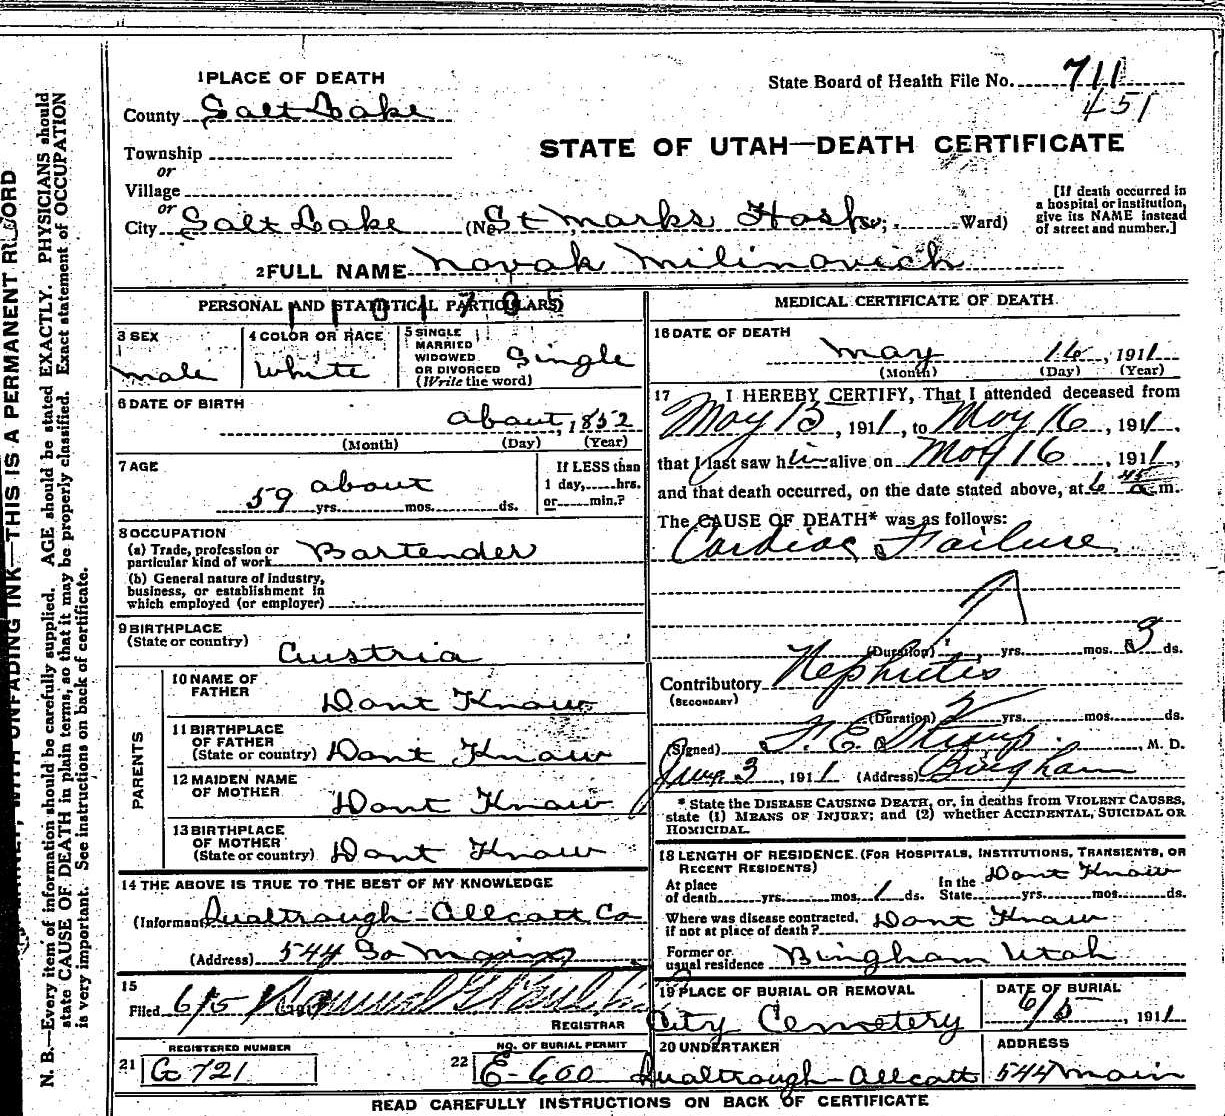 1 PLACE OF DEATH
State Board of Health File No. 711
451
County Salt Lake
STATE OF UTAH—DEATH CERTIFICATE
Township
or
Village
or
City Salt Lake (No St Marks Hosp ; Ward)
[If death occurred in a hospital or institution, give its NAME instead of street and number.]
2 FULL NAME Novak Milinovich
PERSONAL AND STATISTICAL PARTICULARS
1101705
3 SEX
male
4 COLOR OR RACE
White
5 SINGLE
MARRIED
WIDOWED
OR DIVORCED
(Write the word)
Single
6 DATE OF BIRTH
about, 1852
(Month) (Day) (Year)
7 AGE
about
59 yrs. mos. ds.
If LESS than
1 day, hrs.
or min.?
8 OCCUPATION
(a) Trade, profession or
particular kind of work Bartender
(b) General nature of industry,
business, or establishment in
which employed (or employer)
9 BIRTHPLACE
(State or country)
Austria
PARENTS
10 NAME OF
FATHER
Dont Know
11 BIRTHPLACE
OF FATHER
(State or country) Dont Know
12 MAIDEN NAME
OF MOTHER
Dont Know
13 BIRTHPLACE
OF MOTHER
(State or country) Dont Know
14 THE ABOVE IS TRUE TO THE BEST OF MY KNOWLEDGE
(Informant Qualtrough-Allcott Co
(Address) 544 So Main
15
Filed 6/5 191
REGISTRAR
REGISTERED NUMBER
21 G 721
NO. OF BURIAL PERMIT
22 E-600
MEDICAL CERTIFICATE OF DEATH
16 DATE OF DEATH
May 16, 1911
(Month) (Day) (Year)
17 I HEREBY CERTIFY, That I attended deceased from
May 15, 1911, to May 16, 1911,
that I last saw him alive on May 16, 1911,
and that death occurred, on the date stated above, at 6 45 a m.
The CAUSE OF DEATH* was as follows:
Cardiac Failure
(Duration) yrs. mos. 3 ds.
Contributory Nephritis
(SECONDARY)
(Duration) 2 yrs. mos. ds.
(Signed) F. E. , M. D.
June 3, 1911 (Address) Bingham
* State the DISEASE CAUSING DEATH, or, in deaths from VIOLENT CAUSES,
state (1) MEANS OF INJURY; and (2) whether ACCIDENTAL, SUICIDAL OR
HOMICIDAL.
18 LENGTH OF RESIDENCE. (FOR HOSPITALS, INSTITUTIONS, TRANSIENTS, OR
RECENT RESIDENTS)
At place
of death yrs. mos. 1 ds.
In the
State yrs. mos. ds.
Dont Know
Where was disease contracted,
if not at place of death? Dont Know
Former or
usual residence Bingham Utah
19 PLACE OF BURIAL OR REMOVAL
City Cemetery
DATE OF BURIAL
6/5, 1911
20 UNDERTAKER
Qualtrough-Allcott
ADDRESS
544 Main
READ CAREFULLY INSTRUCTIONS ON BACK OF CERTIFICATE
WITH UNFADING INK—THIS IS A PERMANENT RECORD
N. B.—Every item of information should be carefully supplied. AGE should be stated EXACTLY. PHYSICIANS should
state CAUSE OF DEATH in plain terms, so that it may be properly classified. Exact statement of OCCUPATION
is very important. See instructions on back of certificate.